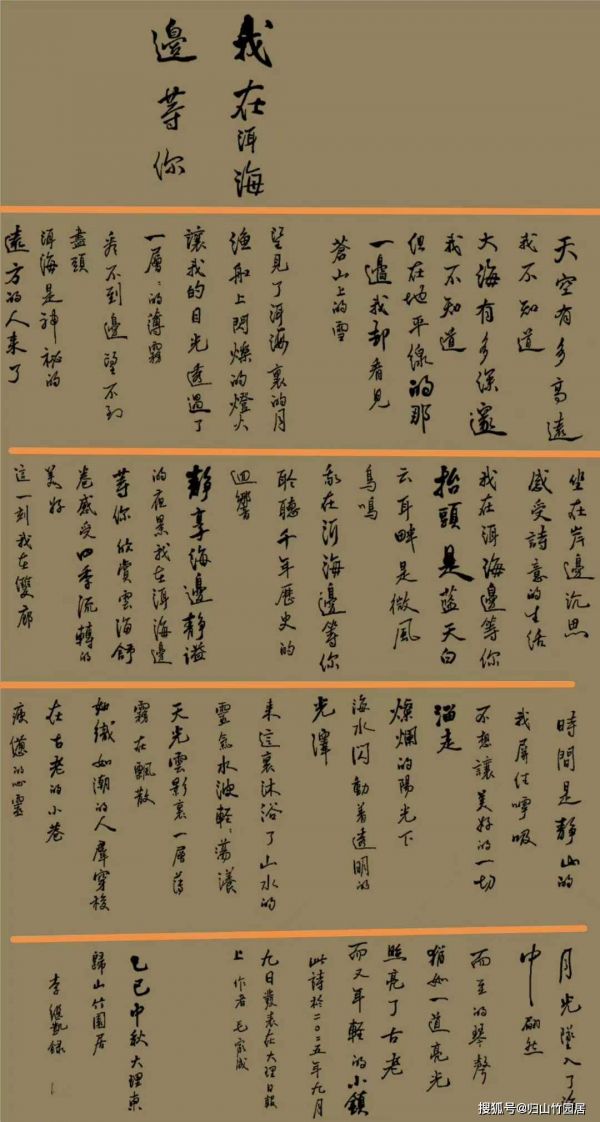 我在洱海
邊等你
天空有多高遠
我不知道
大海有多深邃
我不知道
但在地平線的那
一邊我卻看見
蒼山上的雪
望見了洱海裏的月
漁船上閃爍的燈火
讓我的目光透過了
一層:的薄霧
看不到邊望不到
盡頭
洱海是神祕的
遠方的人來了
坐在岸邊沉思
感受詩意的生活
我在洱海邊等你
抬頭是蓝天白
云耳畔是微風
鳥鳴
我在洱海邊等你
聆聽千年歷史的
迴響
靜享海邊靜谧
的夜景我在洱海邊
等你欣賞雲海舒
卷感受四季流轉的
美好
這一刻我在雙廊
時間是靜止的
我屏住呼吸
不想讓美好的一切
溜走
燦爛的陽光下
海水闪動着透明的
光澤
來這裏沐浴了山水的
靈氣水波輕:荡漾
天光雲影裏一層薄
霧在飄散
如織如潮的人羣穿梭
在古老的小巷
疲憊的心靈
月光墜入了海
中翩然
而至的琴聲
猶如一道亮光
照亮了古老
而又年輕的小鎮
此詩於二〇二五年九月
九日發表在大理日報
上 作者 毛家成
乙巳中秋大理東
歸山竹園居
李繼凱录
搜狐号@归山竹园居